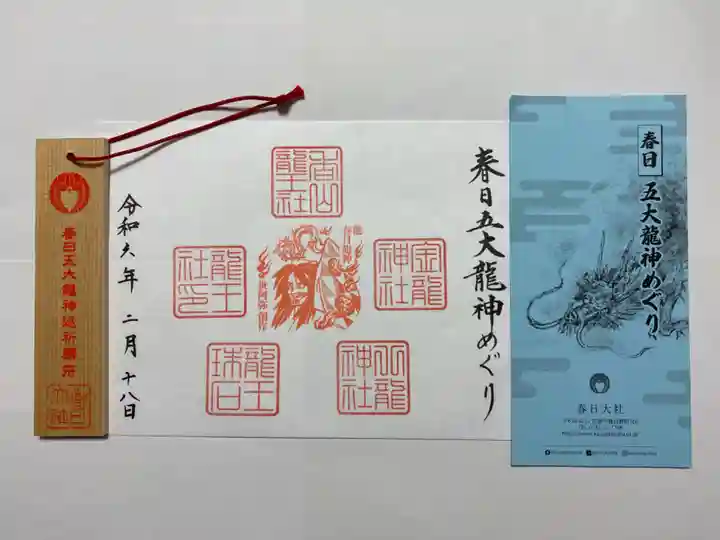 春日五大龍神巡祈願符
春日大社
令和六年 二月 十八日
香山龍王社
龍王社印
金龍神社
龍王珠石
八龍神社
春日五大龍神めぐり
春日
五大龍神めぐり
春日大社